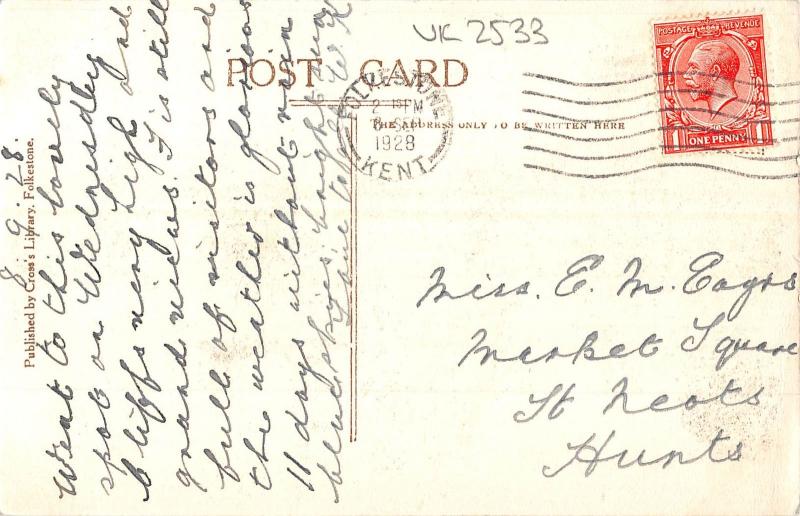 UK 2533
POST CARD
THE ADDRESS ONLY TO BE WRITTEN HERE
FOLKESTONE
2 15 PM
8 SP
1928
KENT
POSTAGE REVENUE
ONE PENNY
Published by Cross's Library, Folkestone.
8. 9. 28.
Went to this lovely
spot on Wednesday
Cliffs very high and
grand views. It is still
full of visitors and
the weather is glorious
11 days without rain
blue skies bright sun
Love to all W. K
Miss. E. M. Eayrs
Market Square
St Neots
Hunts